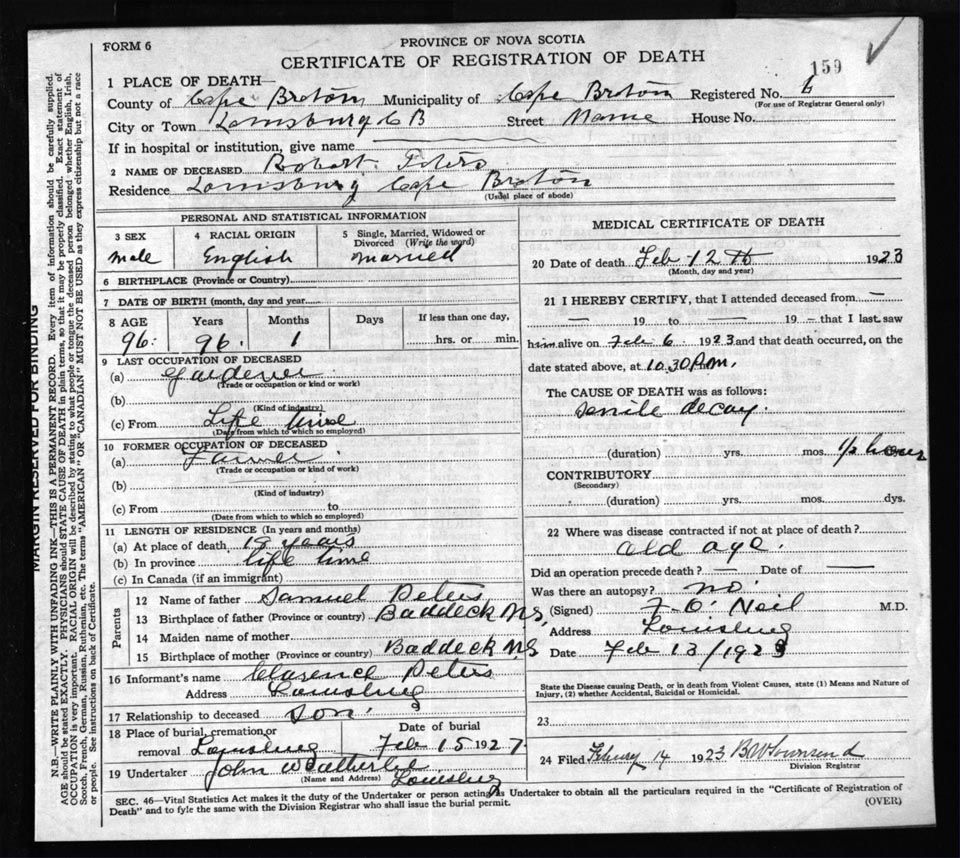 FORM 6
PROVINCE OF NOVA SCOTIA
CERTIFICATE OF REGISTRATION OF DEATH
159
1 PLACE OF DEATH—
County of Cape Breton Municipality of Cape Breton Registered No. 6
(For use of Registrar General only)
City or Town Louisburg C B Street Name House No.
If in hospital or institution, give name
2 NAME OF DECEASED Robert Peters
Residence Louisburg Cape Breton
(Usual place of abode)
PERSONAL AND STATISTICAL INFORMATION
3 SEX
male
4 RACIAL ORIGIN
English
5 Single, Married, Widowed or Divorced (Write the word)
married
6 BIRTHPLACE (Province or Country)
7 DATE OF BIRTH (month, day and year
8 AGE Years Months Days If less than one day,
96. 96. 1 hrs. or min.
9 LAST OCCUPATION OF DECEASED
(a) Gardener
(Trade or occupation or kind or work)
(b)
(Kind of industry)
(c) From Life time
(Date from which to which so employed)
10 FORMER OCCUPATION OF DECEASED
(a) Farmer
(Trade or occupation or kind or work)
(b)
(Kind of industry)
(c) From to
(Date from which to which so employed)
11 LENGTH OF RESIDENCE (In years and months)
(a) At place of death 19 years
(b) In province life time
(c) In Canada (if an immigrant)
Parents
12 Name of father Samuel Peters
13 Birthplace of father (Province or country) Baddeck NS,
14 Maiden name of mother
15 Birthplace of mother (Province or country) Baddeck NS
16 Informant's name Clarence Peters
Address Louisburg
17 Relationship to deceased son.
18 Place of burial, cremation or Date of burial
removal Louisburg Feb 15 1927
19 Undertaker John Weatherbe
(Name and Address) Louisburg
MEDICAL CERTIFICATE OF DEATH
20 Date of death Feb 12 th 1923
(Month, day and year)
21 I HEREBY CERTIFY, that I attended deceased from —
— 19 to — 19 — that I last saw
him alive on Feb 6 1923 and that death occurred, on the
date stated above, at 10.30 P.m.
The CAUSE OF DEATH was as follows:
senile decay.
(duration) yrs. mos. 1/2 hours
CONTRIBUTORY
(Secondary)
(duration) yrs. mos. dys.
22 Where was disease contracted if not at place of death?
old age.
Did an operation precede death? — Date of —
Was there an autopsy? no.
(Signed) F. O' Neil M.D.
Address Louisburg
Date Feb 13/1923
State the Disease causing Death, or in death from Violent Causes, state (1) Means and Nature of
Injury, (2) whether Accidental, Suicidal or Homicidal.
23
24 Filed February 14 1923 B W Townsend
Division Registrar
SEC. 46—Vital Statistics Act makes it the duty of the Undertaker or person acting as Undertaker to obtain all the particulars required in the "Certificate of Registration of
Death" and to fyle the same with the Division Registrar who shall issue the burial permit.
(OVER)
MARGIN RESERVED FOR BINDING
N.B.—WRITE PLAINLY WITH UNFADING INK—THIS IS A PERMANENT RECORD. Every item of information should be carefully supplied.
AGE should be stated EXACTLY. PHYSICIANS should STATE CAUSE OF DEATH in plain terms, so that it may be properly classified. Exact statement of
OCCUPATION is very important. RACIAL ORIGIN will be described by stating to what people or tongue the deceased person belonged, whether English, Irish,
Scotch, French, German, Russian, Ruthenian, etc. The terms "AMERICAN" OR "CANADIAN" MUST NOT BE USED as they express citizenship but not a race
or people. See instructions on back of Certificate.